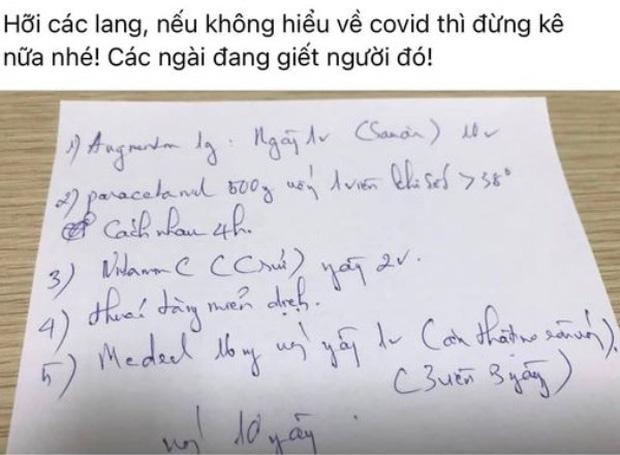 Hỡi các lang, nếu không hiểu về covid thì đừng kê
nữa nhé! Các ngài đang giết người đó!
1) Augmentin 1g: Ngày 1v (Sau ăn) 10v
2) paracetamol 500g uống 1 viên khi sốt > 38°
Cách nhau 4h.
3) Vitamin C (C sủi) ngày 2v.
4) thuốc tăng miễn dịch.
5) Medrol 16mg uống ngày 1v (ăn thật no sáng uống).
(3 viên 3 ngày)
uống 10 ngày